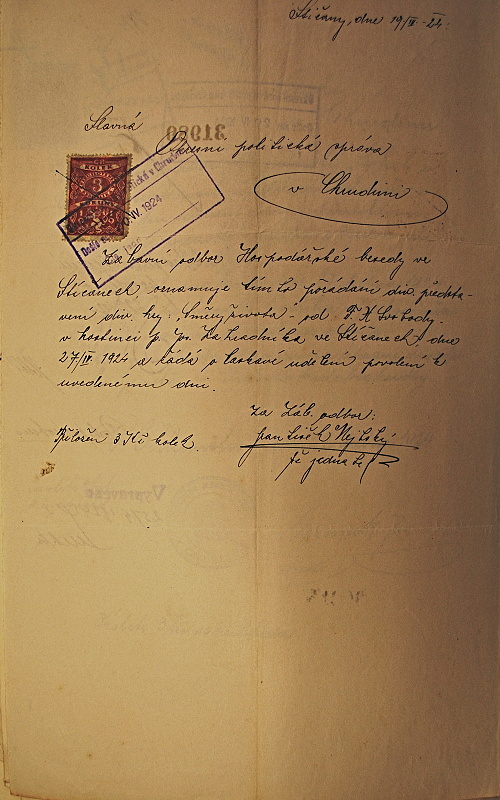 Stíčany, dne 19/IV. 24.
Slavná
Okresní politická správa
v Chrudimi
KOLEK
3
1924
Zábavní odbor Hospodářské besedy ve
Stíčanech, oznamuje tímto pořádání div. předsta-
vení div. hry: „Směry života" od F. X. Svobody
v hostinci p. Zahradníka ve Stíčanech dne
27/IV 1924 a žádá o laskavé udělení povolení k
uvedenému dni.
Za Záb. odbor:
Přiložen 3 Kč kolek. František Nejtský
t. č. jednatel